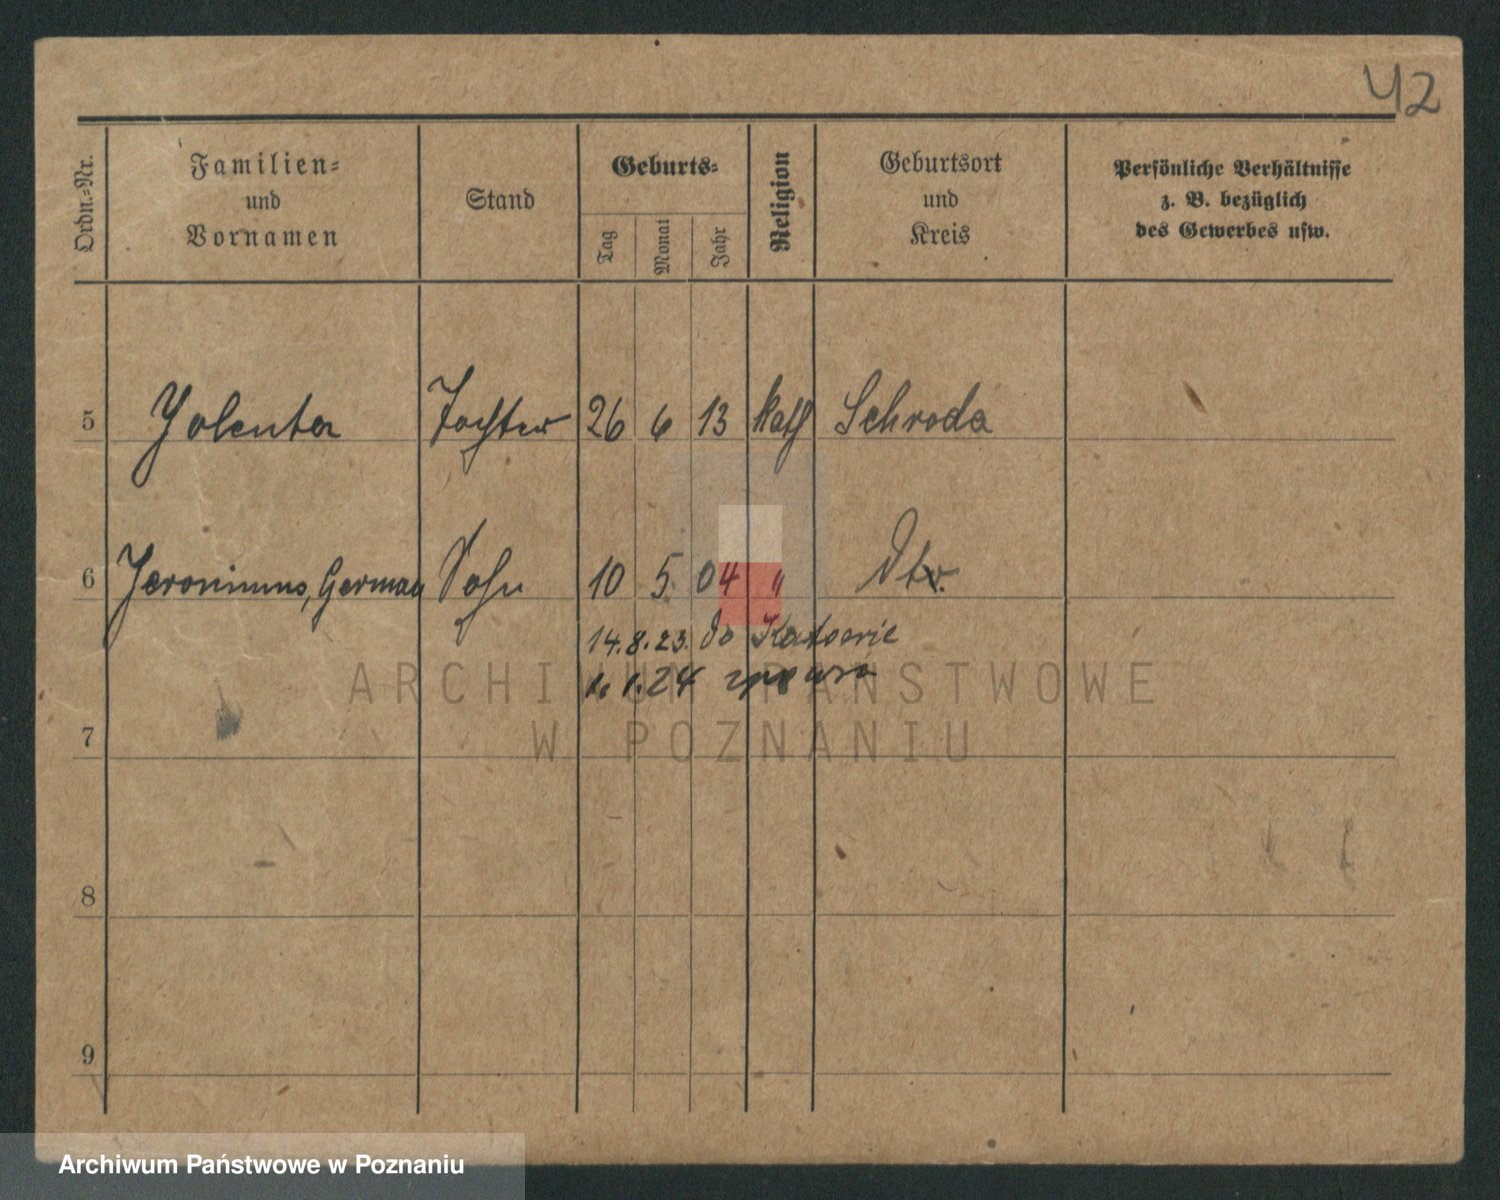 42
Ordn.=Nr.
Familien=
und
Vornamen
Stand
Geburts=
Tag
Monat
Jahr
Religion
Geburtsort
und
Kreis
Persönliche Verhältnisse
z. B. bezüglich
des Gewerbes usw.
5 Yolenta Tochter 26 6 13 kath Schroda
6 Jeronimus, German Sohn 10 5. 04 " Dto.
14.8.23. do Katowic
1. 1.24
ARCHIWUM PAŃSTWOWE
W POZNANIU
7
8
9
Archiwum Państwowe w Poznaniu